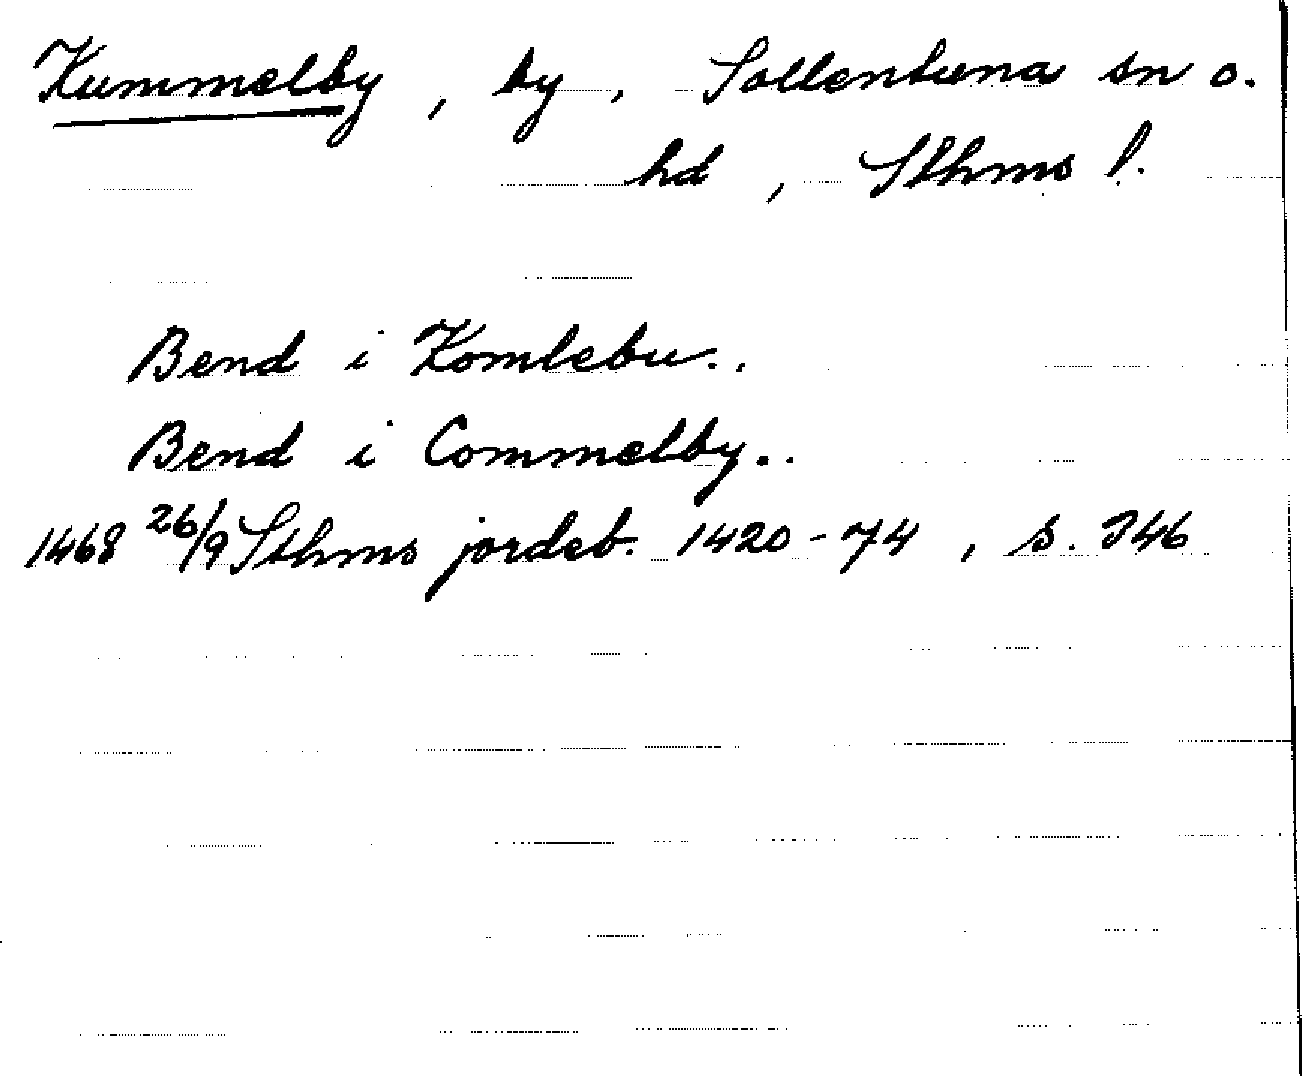 Kummelby, by, Sollentuna sn o.
hd, Sthms l.
Bend i Komlebu..
Bend i Commelby..
1468 26/9 Sthms jordeb. 1420-74, s. 346